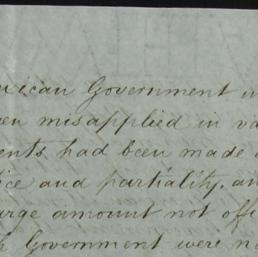 ican Government
en misapplied in va
ents had been made
ice and partiality, an
arge amount not offi
h Government were no